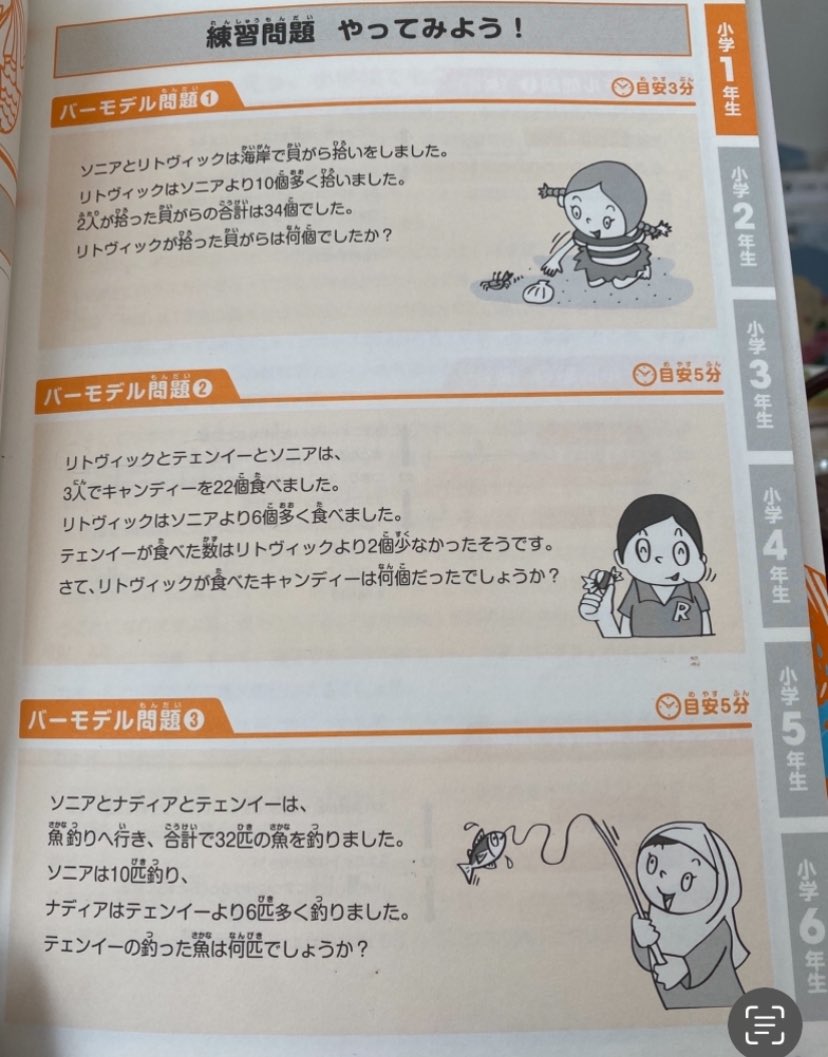 練習問題 やってみよう！
バーモデル問題❶
目安3分
ソニアとリトヴィックは海岸で貝がら拾いをしました。
リトヴィックはソニアより10個多く拾いました。
2人が拾った貝がらの合計は34個でした。
リトヴィックが拾った貝がらは何個でしたか？
バーモデル問題❷
目安5分
リトヴィックとテェンイーとソニアは、
3人でキャンディーを22個食べました。
リトヴィックはソニアより6個多く食べました。
テェンイーが食べた数はリトヴィックより2個少なかったそうです。
さて、リトヴィックが食べたキャンディーは何個だったでしょうか？
R
バーモデル問題❸
目安5分
ソニアとナディアとテェンイーは、
魚釣りへ行き、合計で32匹の魚を釣りました。
ソニアは10匹釣り、
ナディアはテェンイーより6匹多く釣りました。
テェンイーの釣った魚は何匹でしょうか？
小学1年生
小学2年生
小学3年生
小学4年生
小学5年生
小学6年生